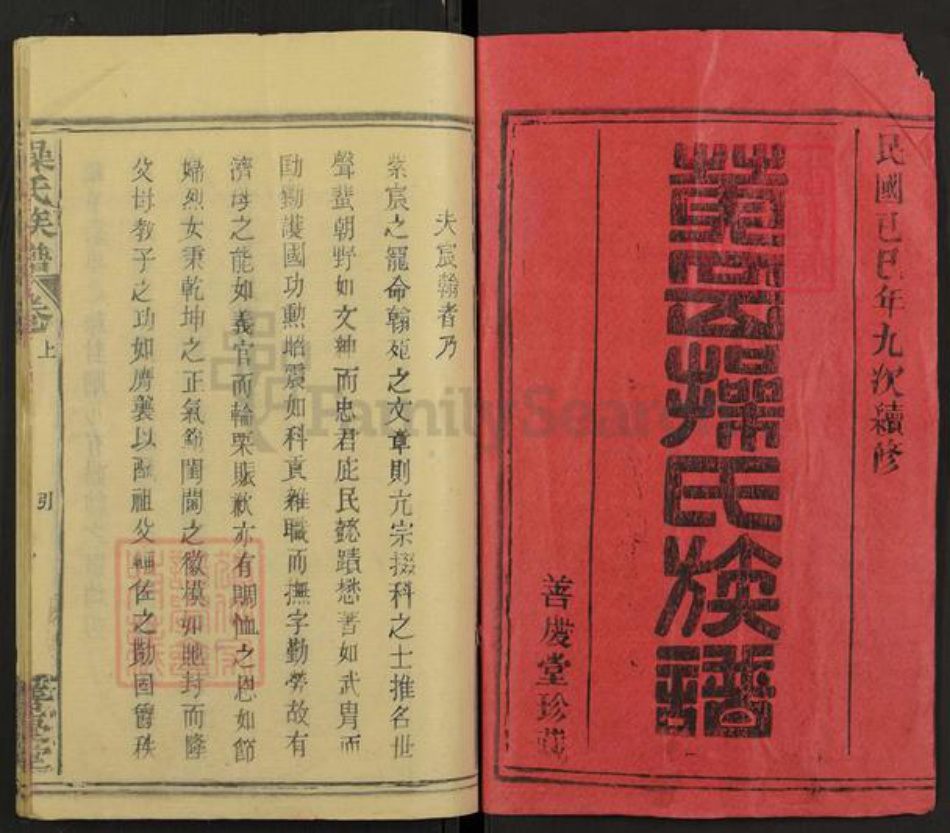 民國己巳年九次續修
操氏族譜
善慶堂珍藏
夫宸翰者乃
紫宸之寵命翰苑之文章則亢宗掇科之士推名世
聲蜚朝野如文紳而忠君庇民懿蹟懋著如武胄而
勛勷護國功勳昭震如科貢雜職而撫字勤勞故有
濟母之能如義官而輸粟賑歉亦有賜恤之恩如節
婦烈女秉乾坤之正氣飾閨閫之徽模如貤封而隆
父母教子之功如廕襲以酬祖父輔佐之勛固爵秩
操氏族譜
卷
上
引
善慶堂
FamilySearch